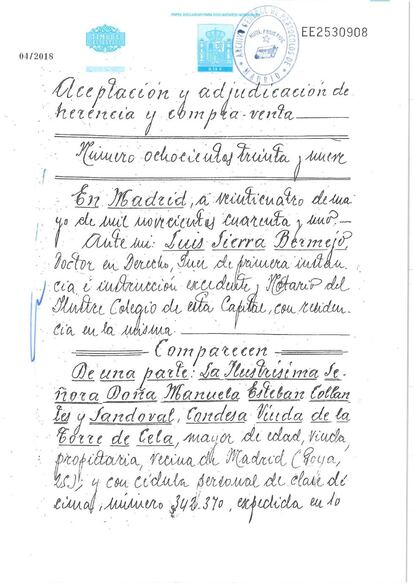 PAPEL EXCLUSIVO PARA DOCUMENTOS NOTARIALES
TIMBRE
EE2530908
04/2018
MADRID
Aceptación y adjudicación de
herencia y compra-venta
Número ochocientos treinta y nueve
En Madrid, a veinticuatro de ma-
yo de mil novecientos cuarenta y uno.-
Ante mi: Luis Sierra Bermejo,
Doctor en Derecho, Juez de primera instan-
cia é instrucción excedente y Notario del
Ilustre Colegio de esta Capital, con residen-
cia en la misma
Comparecen
De una parte: La Ilustrísima Se-
ñora Doña Manuela Esteban Collan-
tes y Sandoval, Condesa Viuda de la
Torre de Cela, mayor de edad, viuda,
propietaria, vecina de Madrid (Goya,
25); y con cédula personal de clase dé-
cima, número 342.370, expedida en 10